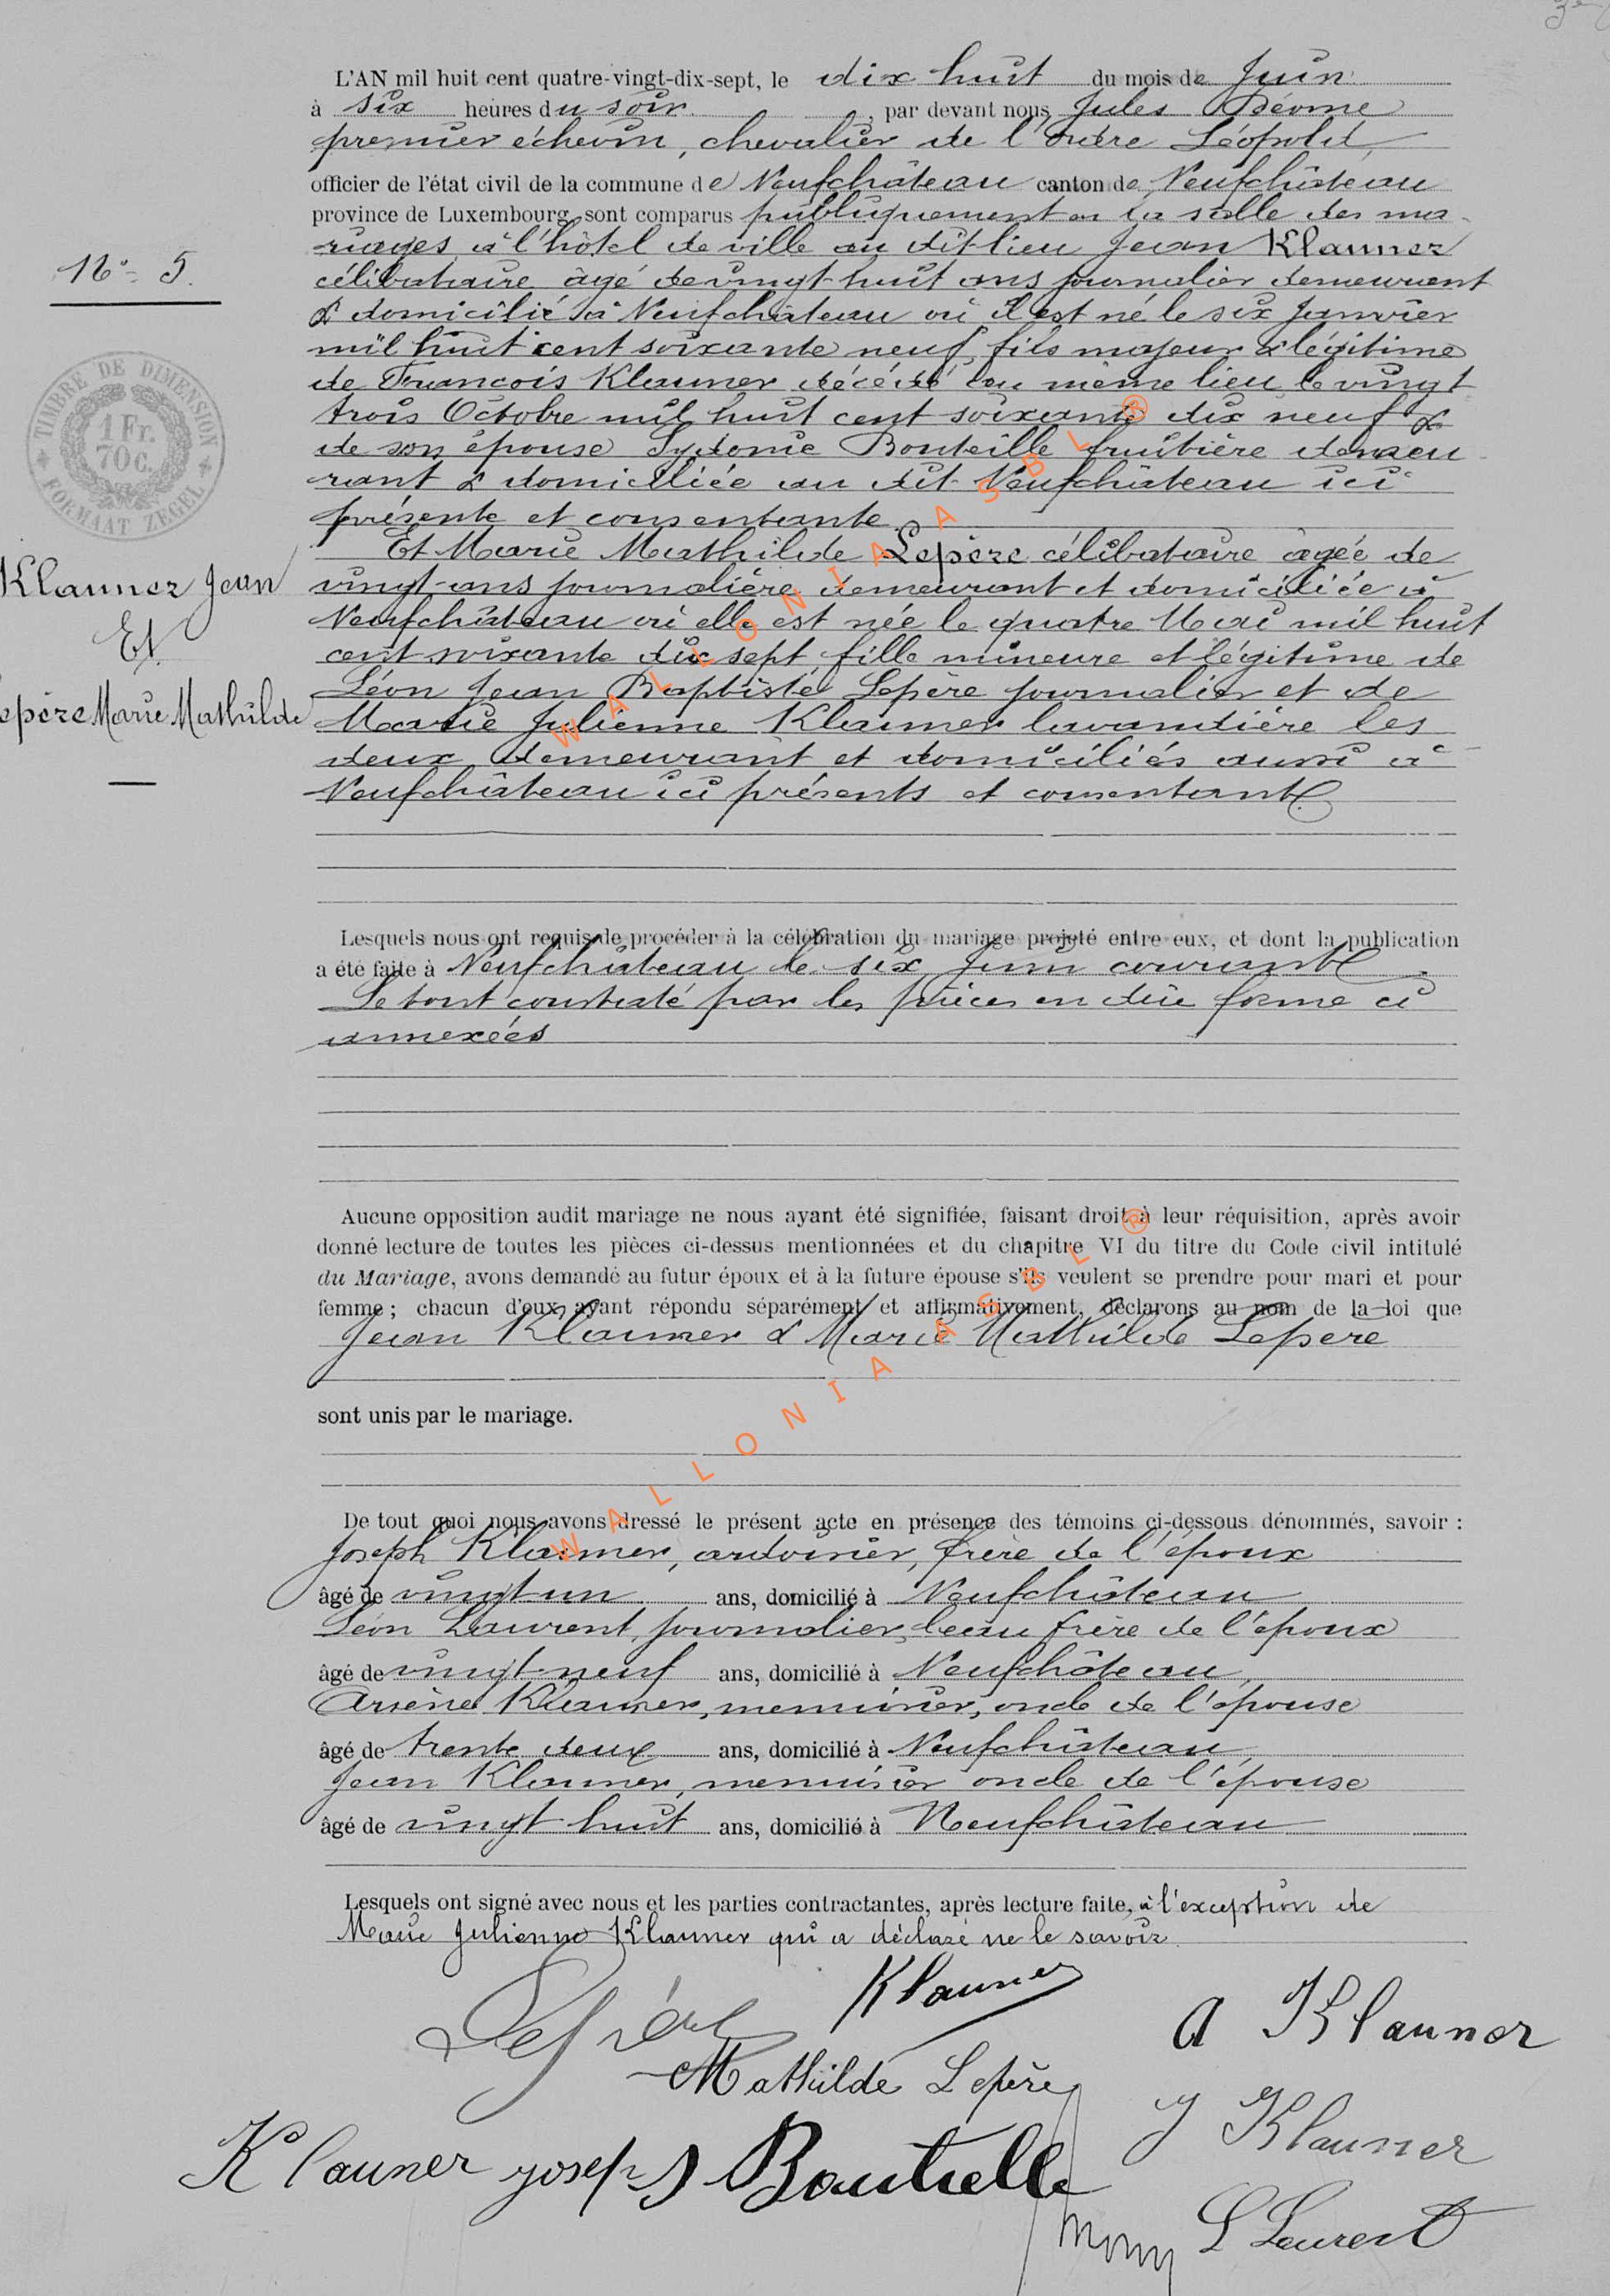 L'AN mil huit cent quatre-vingt-dix-sept, le dix huit du mois de Juin
à six heures du soir, par devant nous, Jules Déome
premier échevin, chevalier de l'ordre Léopold,
officier de l'état civil de la commune de Neufchâteau canton de Neufchâteau
province de Luxembourg, sont comparus publiquement en la salle des ma-
riages à l'hôtel de ville au dit lieu Jean Klauner
célibataire âgé de vingt-huit ans journalier demeurant
& domicilié à Neufchâteau où il est né le six Janvier
mil huit cent soixante neuf, fils majeur & légitime
de François Klauner décédé au même lieu le vingt
trois Octobre mil huit cent soixante dix neuf &
de son épouse Sydonie Bouteille fruitière demeu-
rant & domiciliée au dit Neufchâteau ici
présente et consentante.
Et Marie Mathilde Lepère célibataire âgée de
vingt ans journalière demeurant et domiciliée à
Neufchâteau où elle est née le quatre Mai mil huit
cent soixante dix sept, fille mineure et légitime de
Léon Jean Baptiste Lepère journalier et de
Marie Julienne Klauner lavandière les
deux demeurant et domiciliés aussi à
Neufchâteau ici présents et consentants
N° 5.
TIMBRE DE DIMENSION
1 Fr.
70 c.
FORMAAT ZEGEL
Klauner Jean
Et
epère Marie Mathilde
Lesquels nous ont requis de procéder à la célébration du mariage projeté entre eux, et dont la publication
a été faite à Neufchâteau le six Juin courant
Le tout constaté par les pièces en due forme ci
annexées
Aucune opposition audit mariage ne nous ayant été signifiée, faisant droit à leur réquisition, après avoir
donné lecture de toutes les pièces ci-dessus mentionnées et du chapitre VI du titre du Code civil intitulé
du Mariage, avons demandé au futur époux et à la future épouse s'ils veulent se prendre pour mari et pour
femme ; chacun d'eux ayant répondu séparément et affirmativement, déclarons au nom de la loi que
Jean Klauner & Marie Mathilde Lepère
sont unis par le mariage.
De tout quoi nous avons dressé le présent acte en présence des témoins ci-dessous dénommés, savoir :
Joseph Klauner, ardoisier, frère de l'époux
âgé de vingt-un ans, domicilié à Neufchâteau
Léon Laurent, journalier, beau frère de l'époux
âgé de vingt-neuf ans, domicilié à Neufchâteau,
Arsène Klauner, menuisier, oncle de l'épouse
âgé de trente deux ans, domicilié à Neufchâteau,
Jean Klauner, menuisier oncle de l'épouse
âgé de vingt huit ans, domicilié à Neufchâteau
Lesquels ont signé avec nous et les parties contractantes, après lecture faite, à l'exception de
Marie Julienne Klauner qui a déclaré ne le savoir.
Klauner
Lepère
A Klauner
Mathilde Lepère
J Klauner
Klauner joseph Boutielle
L Laurent
WALLONIA ASBL ®
WALLONIA ASBL ®